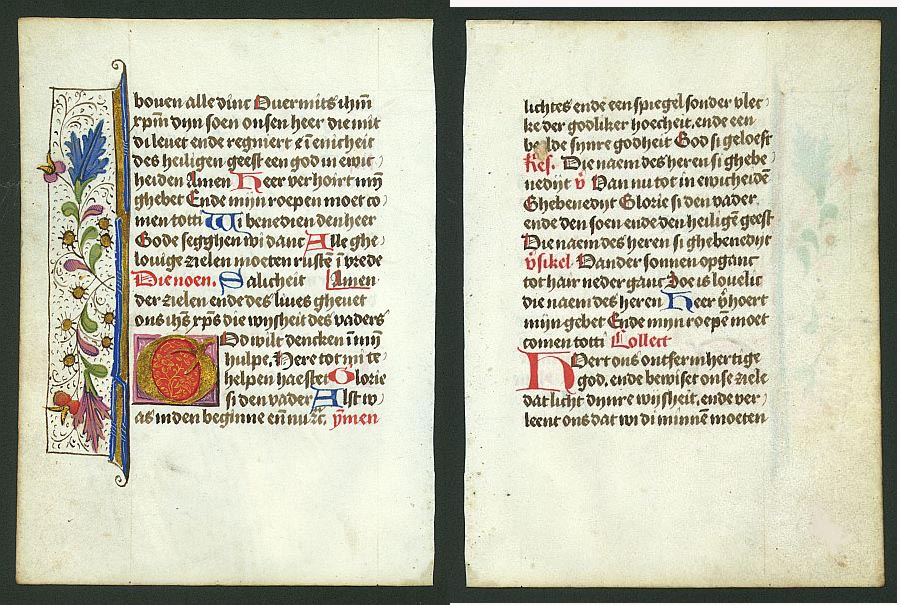 bouen alle dinc Ouermits ihm̄
xpm̄ dyn soen onsen heer die mit
di leuet ende regniert ī enicheit
des heiligen geest een god in ewic
heiden Amen Heer verhoirt myn
ghebet Ende mijn roepen moet co
men totti Wi benedien den heer
Gode segghen wi danc Alle ghe
louige zielen moeten rustē ī vrede
Die noen. Salicheit Amen
der zielen ende des liues gheuet
ons ihs xps die wysheit des vaders
God wilt dencken in mij
hulpe, Here tot mi te
helpen haeste Glorie
si den vader Alst w
as in den beginne en̄ nu ymen
lichtes ende een spiegel sonder vlec
ke der godliker hoecheit. ende een
beelde synre godheit God si geloeft
Die naem des heren si ghebe
nedijt Van nu tot in ewicheidē
Ghebenedyt Glorie si den vader.
ende den soen ende den heiligē geest
Die naem des heren si ghebenedyt
v̓sikel. Vander sonnen opganc
tot hair neder ganc Soe is louelic
die naem des heren Heer v̓hoert
mijn gebet Ende mijn roepē moet
comen totti Collect
Hoert ons ontfermhertige
god. ende bewiset onse ziele
dat licht dynre wijsheit. ende ver
leent ons dat wi di minnē moeten